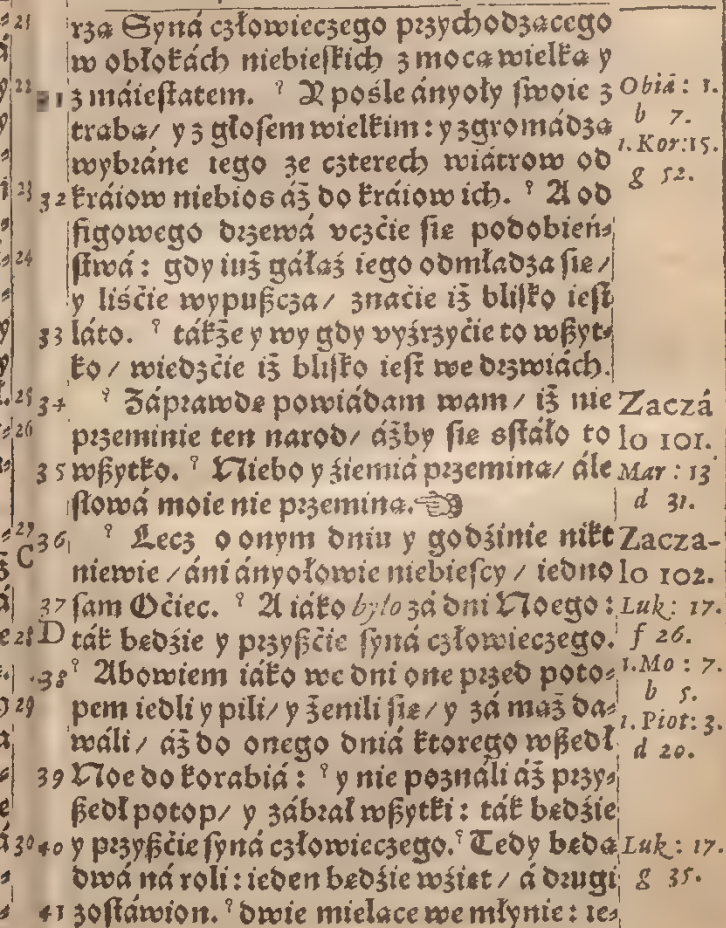 rzą Syná cżłowieczego przychodzącego
w obłokách niebieſkich z mocą wielką y
31 z máieſtatem. ˀ Y pośle ányoły ſwoie z
trąbą/ y z głoſem wielkim: y zgromádzą
wybráne iego ze cżterech wiátrow od
32 kráiow niebios áż do kráiow ich. ˀ A od
figowego drzewá vcżćie ſię podobień⸗
ſtwá: gdy iuż gáłąź iego odmładza ſię/
y liśćie wypuſzcza/ znaćie iż bliſko ieſt
33 láto. ˀ tákże y wy gdy vyźrzyćie to wſzyt⸗
ko/ wiedzćie iż bliſko ieſt we drzwiách.
34 ˀ Záprawdę powiádam wam/ iż nie
przeminie ten narod/ áżby ſię sſtáło to
35 wſzytko. ˀ Niebo y źiemiá przeminą/ ále
ſłowá moie nie przeminą.☜
36 ˀ Lecz o onym dniu y godźinie nikt
niewie/ áni ányołowie niebieſcy/ iedno
37 ſam Oćiec. ˀ A iáko było zá dni Noego:
ták będźie y przyſzćie ſyná cżłowieczego.
38 ˀ Abowiem iáko we dni one przed poto⸗
pem iedli y pili/ y żenili ſię/ y zá mąż da⸗
wáli/ áż do onego dniá ktorego wſzedł
39 Noe do korabiá: ˀ y nie poználi áż przy⸗
ſzedł potop/ y zábrał wſzytki: ták będźie
40 y przyſzćie ſyná cżłowieczego. ˀ Tedy będą
dwá ná roli: ieden będźie wźięt/ á drugi
41 zoſtáwion. ˀ dwie mielące we młynie: ie⸗
Obiá: 1.
b 7.
1. Kor: 15.
g 52.
Zaczá
lo 101.
Mar: 13
d 31.
Zacza-
lo 102.
Luk: 17.
f 26.
1. Mo: 7.
b 5.
1. Piot: 3.
d 20.
Luk: 17.
g 35.
21
22
23
24
25
26
27
C
28 D
29
30